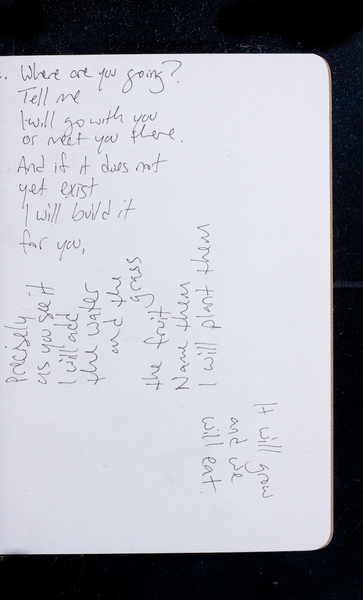 .. Where are you going?
Tell me
I will go with you
or meet you there.
And if it does not
yet exist
I will build it
for you,
Precisely
as you see it
I will add
the water
and the
grass
the fruit
Name them
I will plant them
It will grow
and we
will eat.